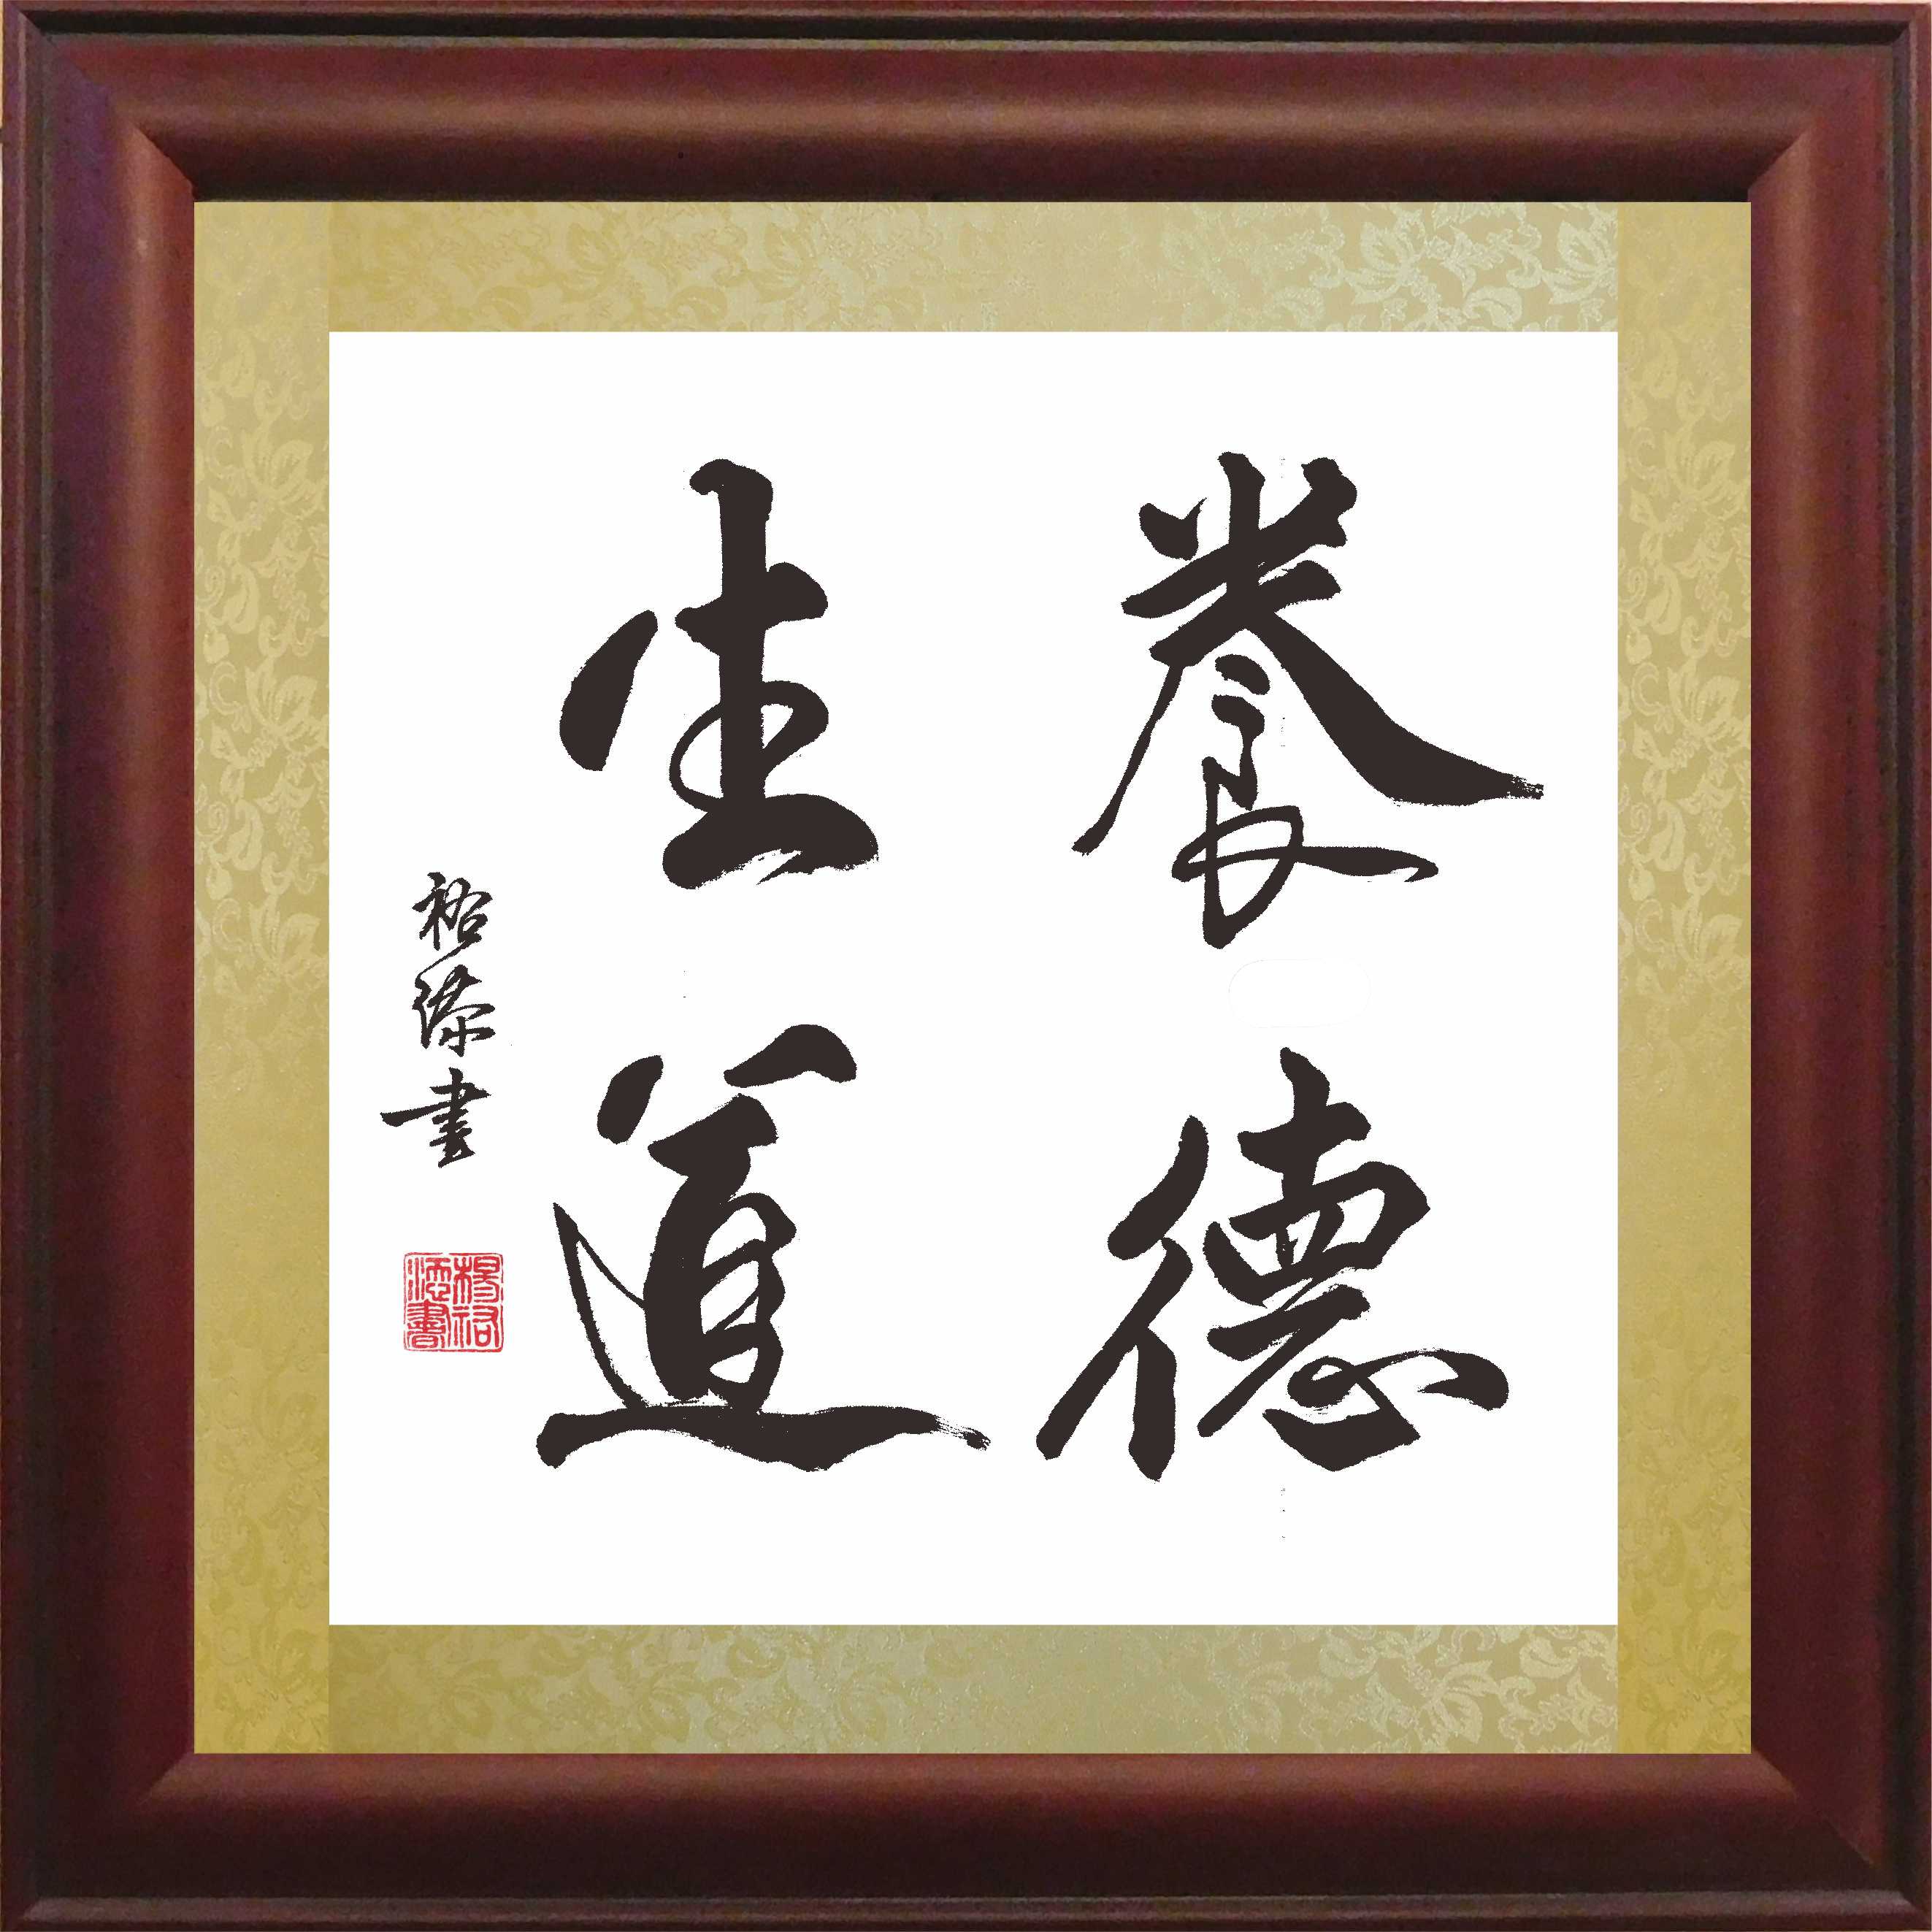 養德
生道
裕添書
楊裕
添書